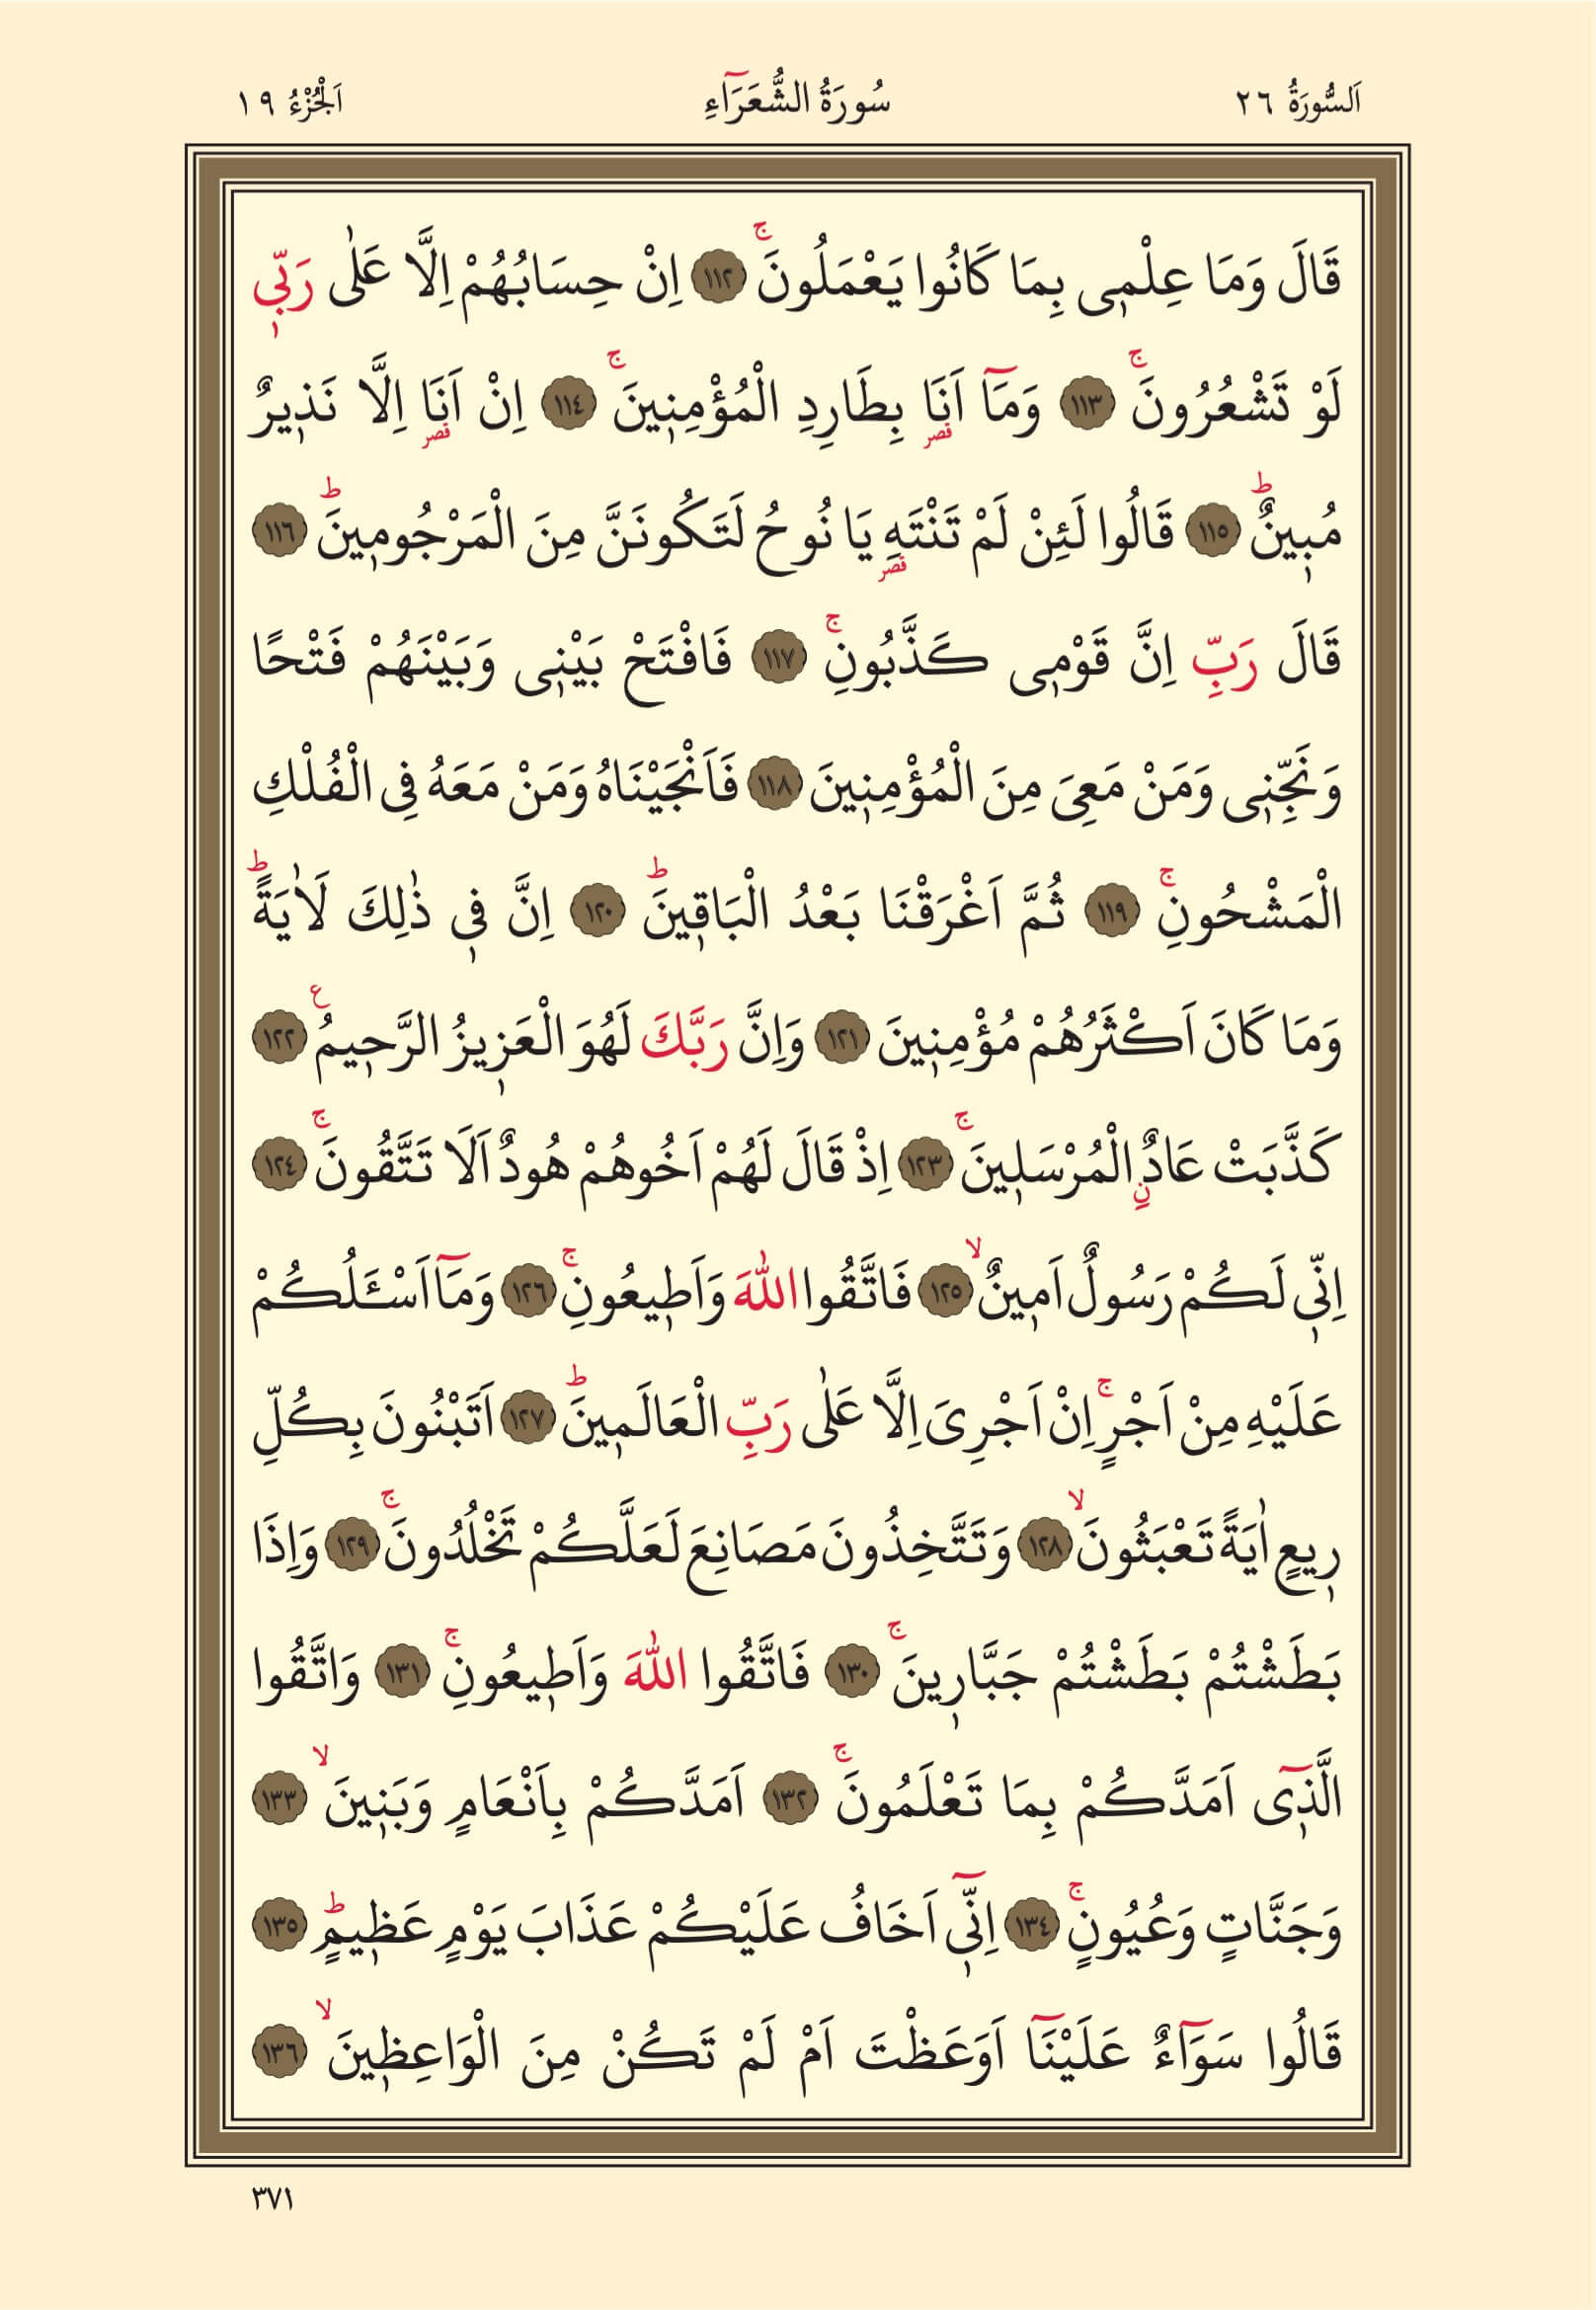 اَلسُّورَةُ ٢٦ سُورَةُ الشُّعَرَٓاءِ اَلْجُزْءُ ١٩
قَالَ وَمَا عِلْمٖى بِمَا كَانُوا يَعْمَلُونَۚ ﴿١١٢﴾ اِنْ حِسَابُهُمْ اِلَّا عَلٰى رَبّٖى
لَوْ تَشْعُرُونَۚ ﴿١١٣﴾ وَمَٓا اَنَا۬ بِطَارِدِ الْمُؤْمِنٖينَۚ ﴿١١٤﴾ اِنْ اَنَا۬ اِلَّا نَذٖيرٌ
مُبٖينٌؕ ﴿١١٥﴾ قَالُوا لَئِنْ لَمْ تَنْتَهِ يَا نُوحُ لَتَكُونَنَّ مِنَ الْمَرْجُومٖينَؕ ﴿١١٦﴾
قَالَ رَبِّ اِنَّ قَوْمٖى كَذَّبُونِۚ ﴿١١٧﴾ فَافْتَحْ بَيْنٖى وَبَيْنَهُمْ فَتْحًا
وَنَجِّنٖى وَمَنْ مَعِىَ مِنَ الْمُؤْمِنٖينَ ﴿١١٨﴾ فَاَنْجَيْنَاهُ وَمَنْ مَعَهُ فِى الْفُلْكِ
الْمَشْحُونِۚ ﴿١١٩﴾ ثُمَّ اَغْرَقْنَا بَعْدُ الْبَاقٖينَؕ ﴿١٢٠﴾ اِنَّ فٖى ذٰلِكَ لَاٰيَةًؕ
وَمَا كَانَ اَكْثَرُهُمْ مُؤْمِنٖينَ ﴿١٢١﴾ وَاِنَّ رَبَّكَ لَهُوَ الْعَزٖيزُ الرَّحٖيمُ ع ﴿١٢٢﴾
كَذَّبَتْ عَادٌۨ الْمُرْسَلٖينَۚ ﴿١٢٣﴾ اِذْ قَالَ لَهُمْ اَخُوهُمْ هُودٌ اَلَا تَتَّقُونَۚ ﴿١٢٤﴾
اِنّٖى لَكُمْ رَسُولٌ اَمٖينٌۙ ﴿١٢٥﴾ فَاتَّقُوا اللّٰهَ وَاَطٖيعُونِۚ ﴿١٢٦﴾ وَمَٓا اَسْـَٔلُكُمْ
عَلَيْهِ مِنْ اَجْرٍۚ اِنْ اَجْرِىَ اِلَّا عَلٰى رَبِّ الْعَالَمٖينَؕ ﴿١٢٧﴾ اَتَبْنُونَ بِكُلِّ
رٖيعٍ اٰيَةً تَعْبَثُونَۙ ﴿١٢٨﴾ وَتَتَّخِذُونَ مَصَانِعَ لَعَلَّكُمْ تَخْلُدُونَۚ ﴿١٢٩﴾ وَاِذَا
بَطَشْتُمْ بَطَشْتُمْ جَبَّارٖينَۚ ﴿١٣٠﴾ فَاتَّقُوا اللّٰهَ وَاَطٖيعُونِۚ ﴿١٣١﴾ وَاتَّقُوا
الَّذٖٓى اَمَدَّكُمْ بِمَا تَعْلَمُونَۚ ﴿١٣٢﴾ اَمَدَّكُمْ بِاَنْعَامٍ وَبَنٖينَۙ ﴿١٣٣﴾
وَجَنَّاتٍ وَعُيُونٍۚ ﴿١٣٤﴾ اِنّٖٓى اَخَافُ عَلَيْكُمْ عَذَابَ يَوْمٍ عَظٖيمٍؕ ﴿١٣٥﴾
قَالُوا سَوَٓاءٌ عَلَيْنَٓا اَوَعَظْتَ اَمْ لَمْ تَكُنْ مِنَ الْوَاعِظٖينَۙ ﴿١٣٦﴾
٣٧١